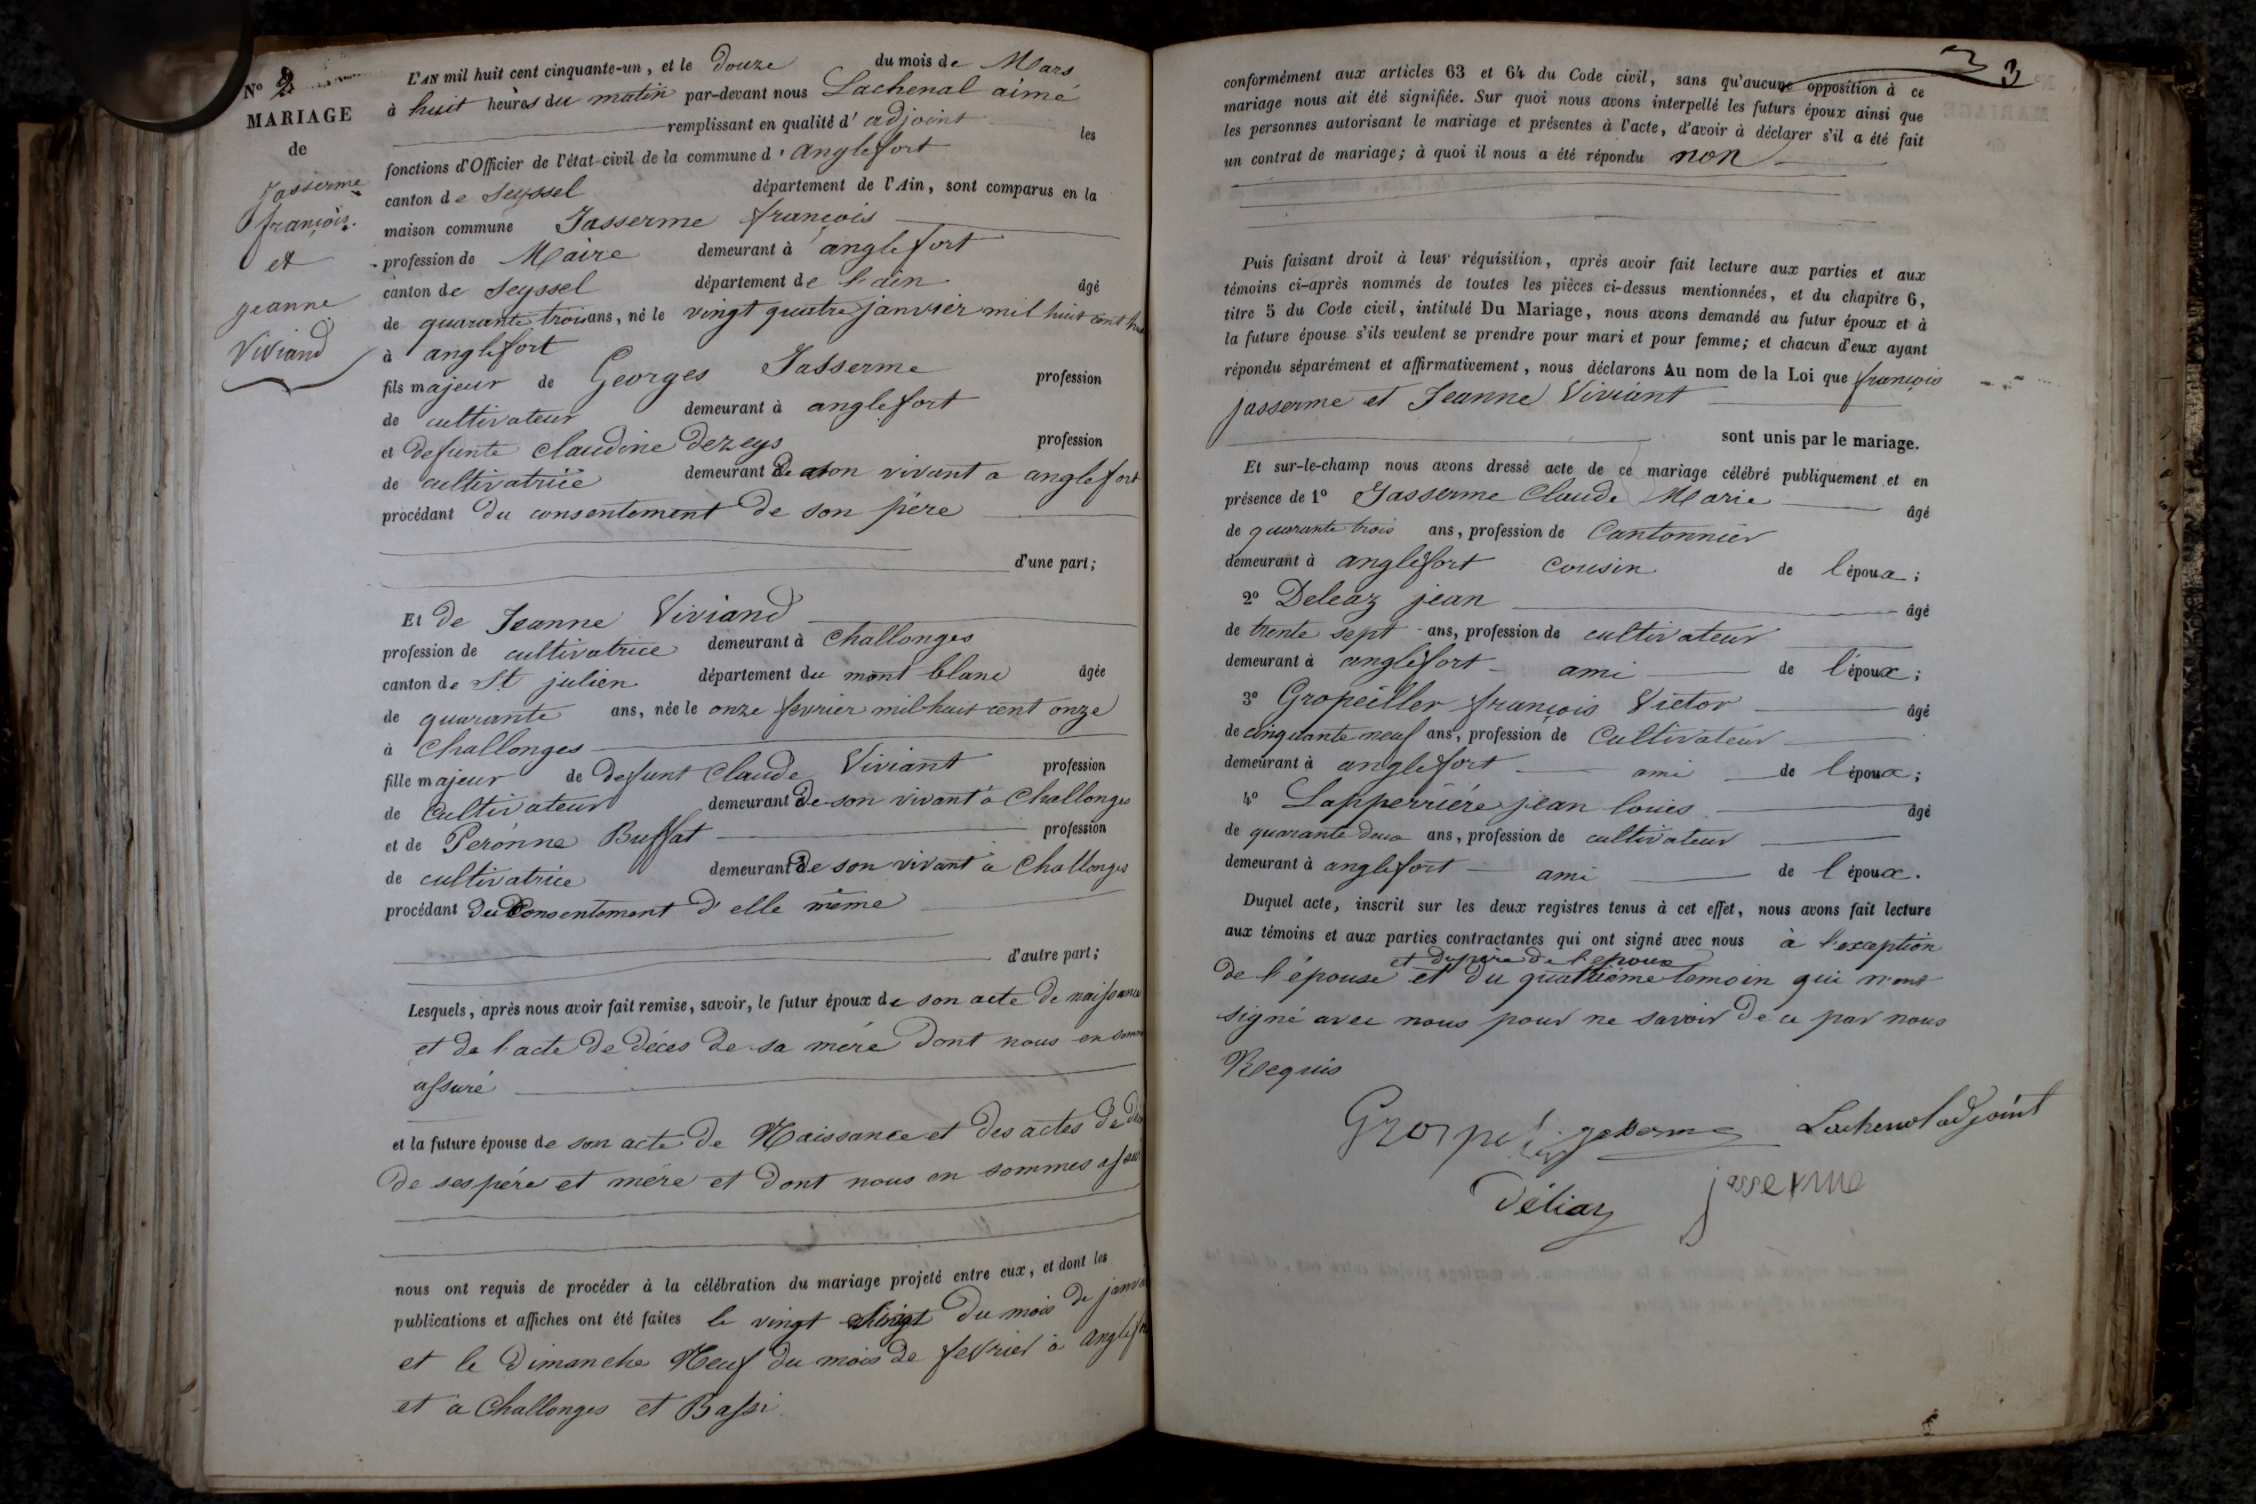 N° 2
MARIAGE
de
Jasserme
françois.
et
jeanne
Viviand
L'AN mil huit cent cinquante-un, et le douze du mois de Mars
à huit heures du matin par-devant nous Lachenal aimé
remplissant en qualité d'adjoint les
fonctions d'Officier de l'état-civil de la commune d'anglefort
canton de Seyssel département de l'Ain, sont comparus en la
maison commune Jasserme françois
profession de Maire demeurant à anglefort
canton de Seyssel département de l'ain âgé
de quarante trois ans, né le vingt quatre janvier mil huit cent
à anglefort
fils majeur de Georges Jasserme profession
de cultivateur demeurant à anglefort
et defunte Claudine Dezeys profession
de cultivatrice demeurant de son vivant a anglefort
procédant du consentement de son père
d'une part;
Et de Jeanne Viviand
profession de cultivatrice demeurant à Challonges
canton de St julien département du mont blanc âgée
de quarante ans, née le onze fevrier mil huit cent onze
à Challonges
fille majeur de defunt Claude Viviant profession
de Cultivateur demeurant de son vivant a Challonges
et de Peronne Buffat profession
de cultivatrice demeurant de son vivant a Challonges
procédant du Consentement d'elle même
d'autre part;
Lesquels, après nous avoir fait remise, savoir, le futur époux de son acte de naissance
et de l'acte de décès de sa mére dont nous en somme
assuré
et la future épouse de son acte de Naissance et des actes de
de ses père et mére et dont nous en sommes
nous ont requis de procéder à la célébration du mariage projeté entre eux, et dont les
publications et affiches ont été faites le vingt du mois de
et le dimanche Neuf du mois de fevrier à
et a Challonges et Bassi
3
conformément aux articles 63 et 64 du Code civil, sans qu'aucune opposition à ce
mariage nous ait été signifiée. Sur quoi nous avons interpellé les futurs époux ainsi que
les personnes autorisant le mariage et présentes à l'acte, d'avoir à déclarer s'il a été fait
un contrat de mariage; à quoi il nous a été répondu non
Puis faisant droit à leur réquisition, après avoir fait lecture aux parties et aux
témoins ci-après nommés de toutes les pièces ci-dessus mentionnées, et du chapitre 6,
titre 5 du Code civil, intitulé Du Mariage, nous avons demandé au futur époux et à
la future épouse s'ils veulent se prendre pour mari et pour femme; et chacun d'eux ayant
répondu séparément et affirmativement, nous déclarons Au nom de la Loi que françois
jasserme et Jeanne Viviant
sont unis par le mariage.
Et sur-le-champ nous avons dressé acte de ce mariage célébré publiquement et en
présence de 1° Jasserme Claude Marie âgé
de quarante trois ans, profession de Cantonnier
demeurant à anglefort cousin de l'époux;
2° Deleaz jean âgé
de trente sept ans, profession de cultivateur
demeurant à anglefort ami de l'époux;
3° Gropeiller françois Victor âgé
de cinquante neuf ans, profession de Cultivateur
demeurant à anglefort ami de l'époux;
4° Lapperriére jean louis âgé
de quarante deux ans, profession de cultivateur
demeurant à anglefort ami de l'époux.
Duquel acte, inscrit sur les deux registres tenus à cet effet, nous avons fait lecture
aux témoins et aux parties contractantes qui ont signé avec nous à l'exception
et du père de l'epoux
de l'épouse et du quatrième temoin qui n'ont
signé avec nous pour ne savoir de ce par nous
Requis
Lachenal adjoint
jasserme